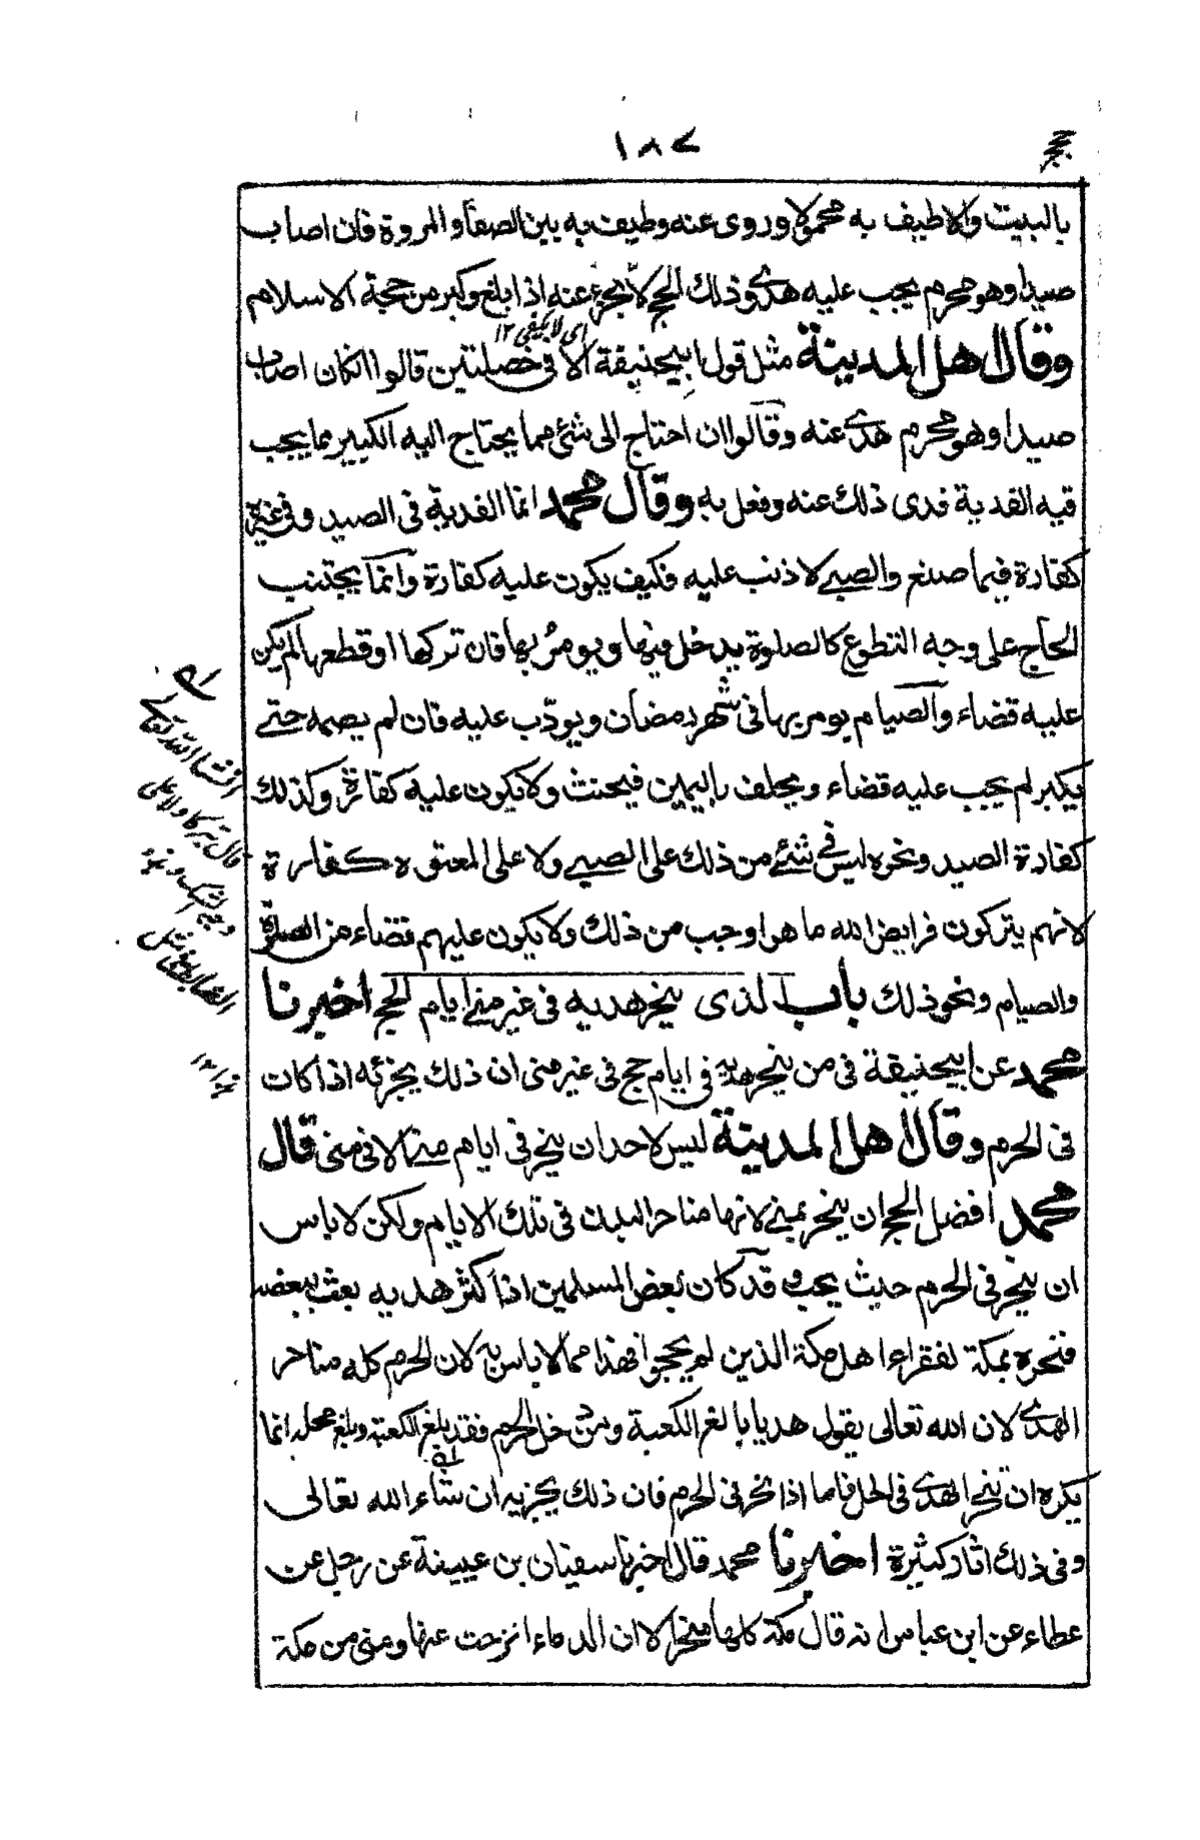 حج
١٨٧
بالبيت والاطيف به محمولا وروى عنه وطيف به بين الصفا والمروة فان اصاب
صيدا وهو محرم يجب عليه هدى وذلك الحج لا يجزئ عنه اذا بلغ وكبر من حجة الاسلام
اى لا يكفى ١٢
وقال اهل المدينة مثل قول ابيحنيفة الا فى خصلتين قالوا ان كان اصاب
صيدا وهو محرم هدى عنه وقالوا ان احتاج الى شئ مما يحتاج اليه الكبير مما يجب
فيه الفدية فدى ذلك عنه وفعل به وقال محمد انما الفدية فى الصيد وفى غيره
كفارة فيما صنع والصبى لا ذنب عليه فكيف يكون عليه كفارة وانما يجتنب
الحاج على وجه التطوع كالصلوة يدخل فيها ويومر بها فان تركها او قطعها لم يكن
عليه قضاء والصيام يومر بها فى شهر رمضان ويودّب عليه فان لم يصمه حتى
يكبر لم يجب عليه قضاء ويحلف باليمين فيحنث ولا يكون عليه كفارة وكذلك
كفارة الصيد ونحوه ليس فى شئ من ذلك على الصبى ولا على المعتوه كفارة
لانهم يتركون فرايض الله ما هو اوجب من ذلك ولا يكون عليهم قضاء من الصلوة
والصيام ونحو ذلك باب الذى ينحر هديه فى غير منى ايام الحج اخبرنا
محمد عن ابيحنيفة فى من ينحر هديه فى ايام حج فى غير منى ان ذلك يجزئه اذا كان
فى الحرم وقال اهل المدينة ليس لاحد ان ينحر فى ايام منى الا فى منى قال
محمد افضل الحج ان ينحر بمنى لانها مناحر البدن فى تلك الايام ولكن لا باس
ان ينحر فى الحرم حيث يحب وقد كان بعض المسلمين اذا كثر هديه بعث ببعضه
فنحره بمكة لفقراء اهل مكة الذين لم يحجوا فهذا مما لا باس به لان الحرم كله مناحر
الهدى لان الله تعالى يقول هديا بالغ الكعبة ومن دخل الحرم فقد بلغ الكعبة وبلغ محله انما
يكره ان ينحر الهدى فى الحل فاما اذا نحر فى الحرم فان ذلك يجزيه ان شاء الله تعالى
وفى ذلك اثار كثيرة اخبرنا محمد قال اخبرنا سفيان بن عيينة عن رجل عن
عطاء عن ابن عباس انه قال مكة كلها منحر الا ان الدماء نزحت عنها ومنى من مكة
ان شاء الله تعالى
قال تبركا ولا على
وجه الشك